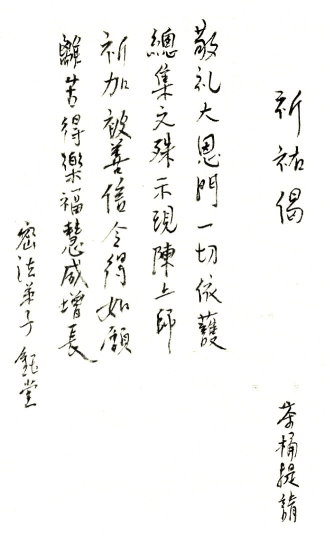 祈祐偈
茶桶提請
敬礼大恩門一切依護
總集文殊示現陳上師
祈加被善信令得如願
離苦得樂福慧咸增長
密法弟子鈺堂